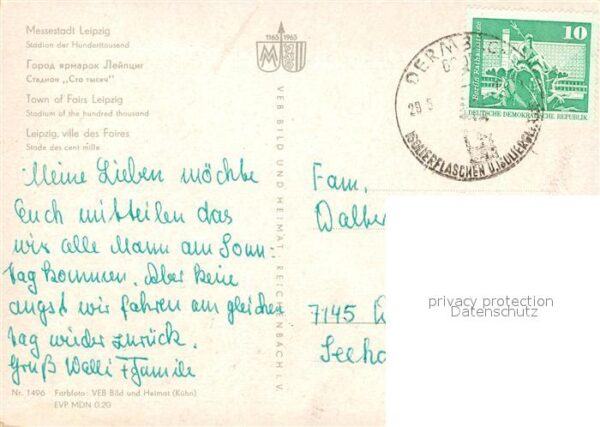 Messestadt Leipzig
Stadion der Hunderttausend
Город ярмарок Лейпциг
Стадион „Сто тысяч“
Town of Fairs Leipzig
Stadium of the hundred thousand
Leipzig, ville des Foires
Stade des cent mille
1165 1965
VEB BILD UND HEIMAT REICHENBACH I. V.
10
Berlin Rathausstraße
DEUTSCHE DEMOKRATISCHE REPUBLIK
DERMBACH
29 5
Meine Lieben möchte
Euch mitteilen das
wir alle Mann am Sonn-
tag kommen. Aber keine
angst wir fahren am gleichen
tag wieder zurück.
Gruß Walli + Familie
Fam.
7145
privacy protection
Datenschutz
Nr. 1496 Farbfoto: VEB Bild und Heimat (Kühn)
EVP MDN 0.20